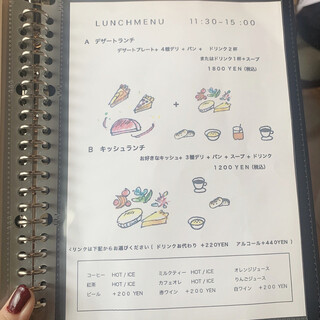 LUNCHMENU 11:30-15:00
A デザートランチ
デザートプレート+ 4種デリ + パン + ドリンク2杯
またはドリンク1杯+スープ
1900 YEN (税込)
B キッシュランチ
お好きなキッシュ+ 3種デリ + パン + スープ + ドリンク
1200 YEN (税込)
リンクは下記からお選びください ( ドリンクお代わり +220YEN アルコール+440YEN)
コーヒー HOT / ICE ミルクティー HOT / ICE オレンジジュース
紅茶 HOT / ICE カフェオレ HOT / ICE りんごジュース
ビール +200 YEN 赤ワイン +200 YEN 白ワイン +200 YEN